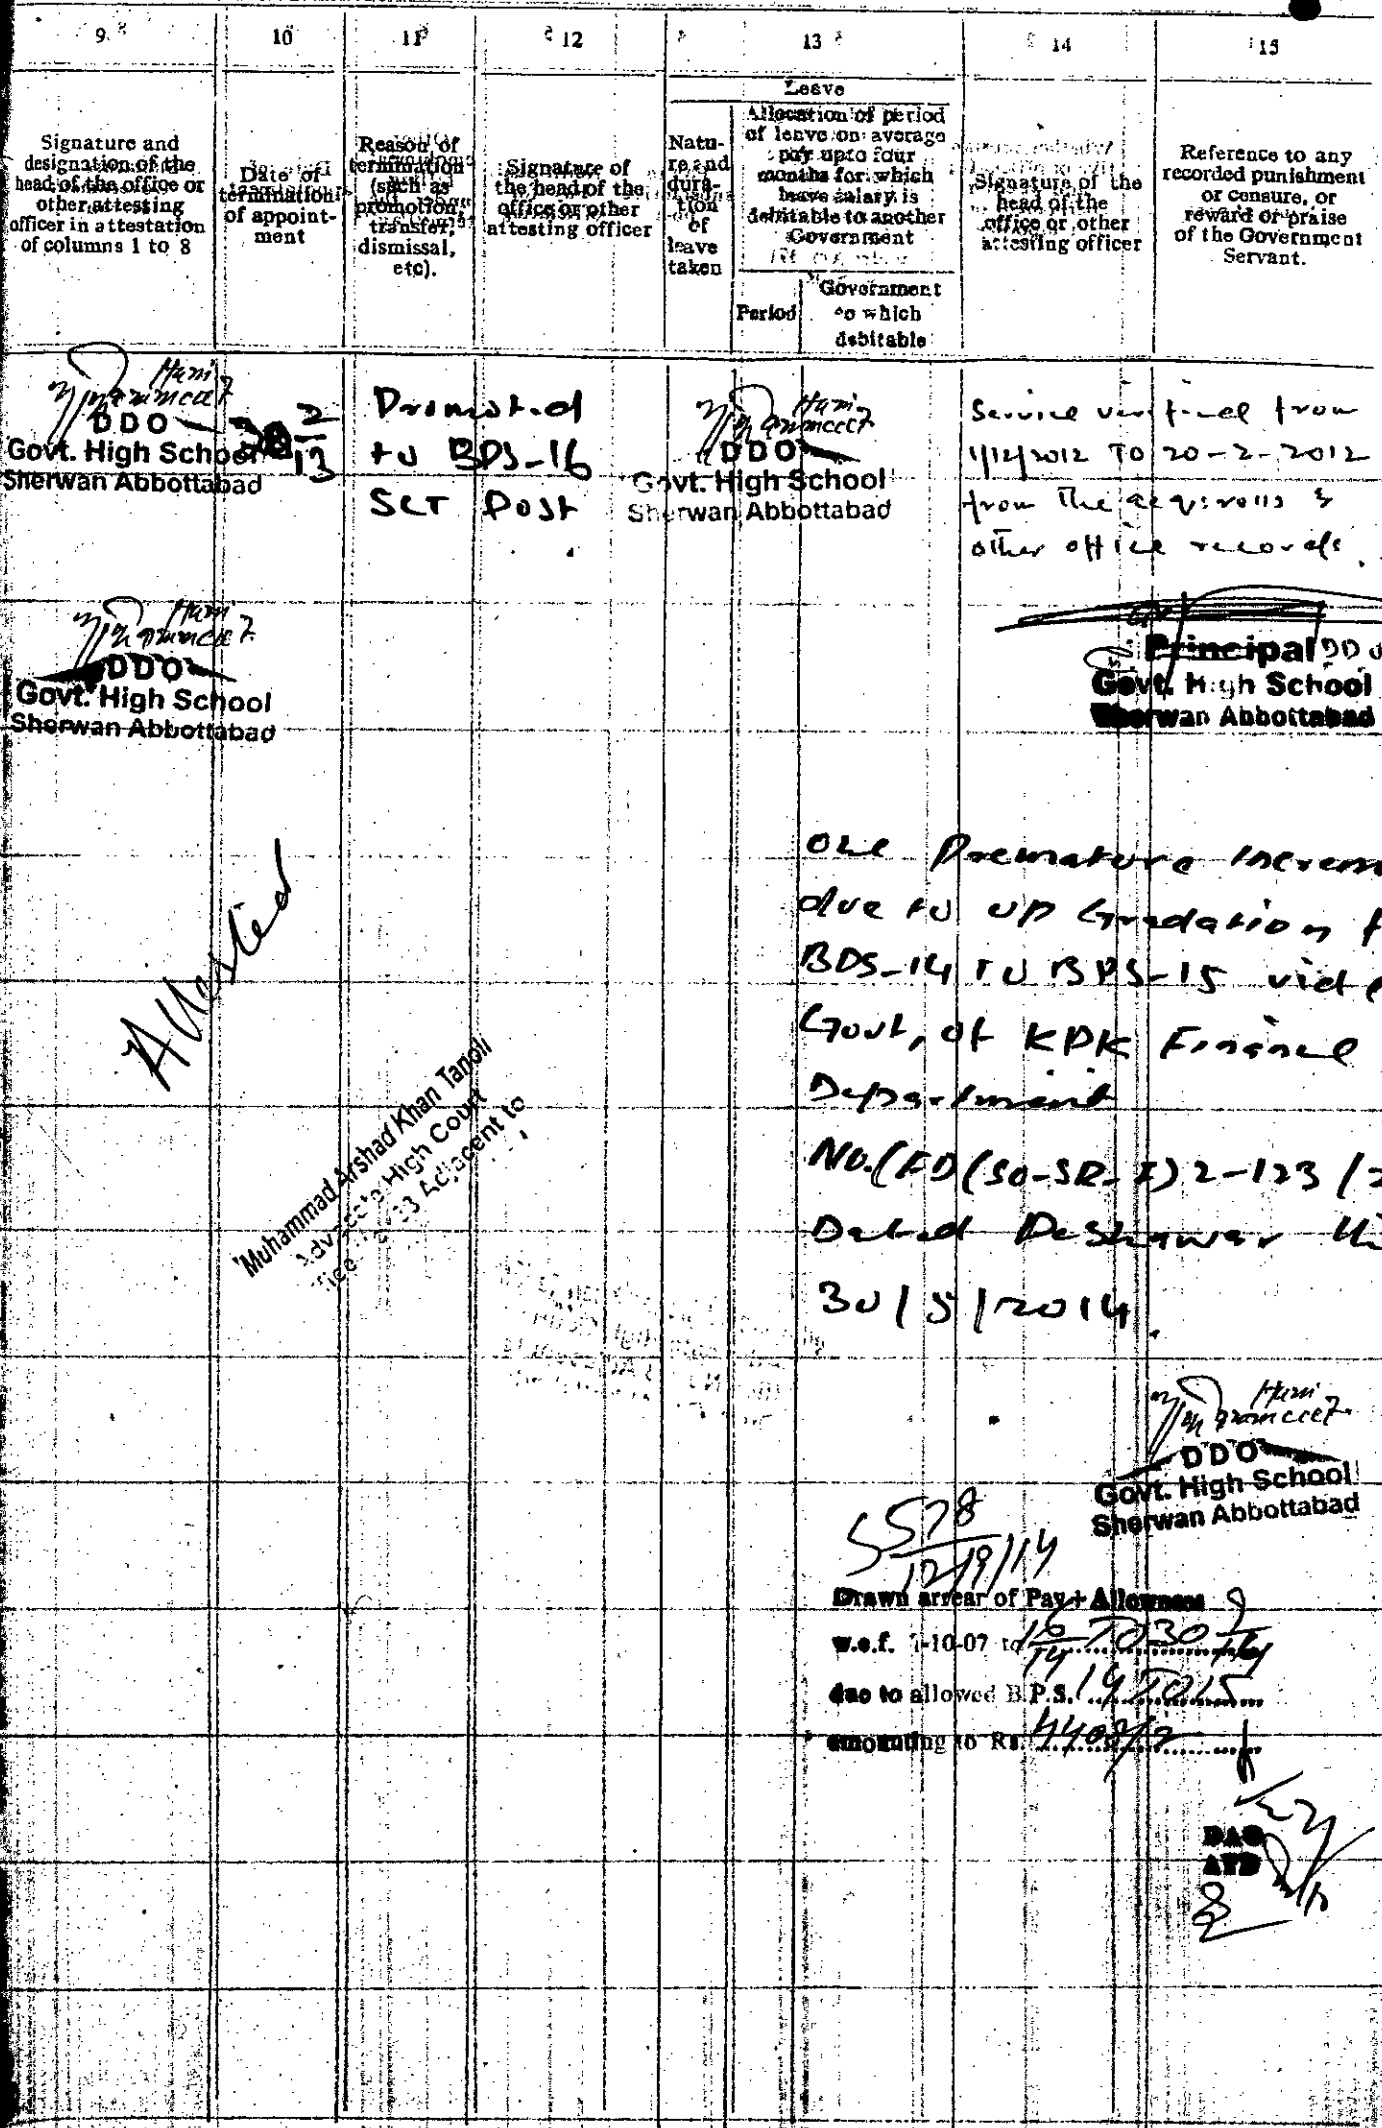 9
10
11
12
13
14
15
Signature and
designation of the
head of the office or
other attesting
officer in attestation
of columns 1 to 8
Date of
termination
of appoint-
ment
Reason of
termination
(such as
promotion,
transfer,
dismissal,
etc).
Signature of
the head of the
office or other
attesting officer
Leave
Natu-
re and
dura-
tion
of
leave
taken
Allocation of period
of leave on average
pay upto four
months for which
leave salary is
debitable to another
Government
Period
Government
to which
debitable
Signature of the
head of the
office or other
attesting officer
Reference to any
recorded punishment
or censure, or
reward or praise
of the Government
Servant.
DDO
Govt. High School
Sherwan Abbottabad
2
13
Promoted
to BPS-16
SCT Post
DDO
Govt. High School
Sherwan Abbottabad
Service verified from
1/12/2012 TO 20-2-2012
from the acq: rolls &
other office records.
DDO
Govt. High School
Sherwan Abbottabad
Principal DDO
Govt. High School
Sherwan Abbottabad
One Premature Increm
due to up Gradation f
BPS-14 to BPS-15 vide
Govt, of KPK Finance
Department
NO.(FD(SO-SR-I)2-123/2
Dated Peshawar th
30/5/2014.
Attested
Muhammad Arshad Khan Tanoli
Advocate High Court
33 Adjacent to
DDO
Govt. High School
Sherwan Abbottabad
5578
12/9/14
Drawn arrear of Pay + Allowances
w.e.f. 1-10-07 to
due to allowed B.P.S. 14 TO 15
amounting to Rs.
DAO
ATD